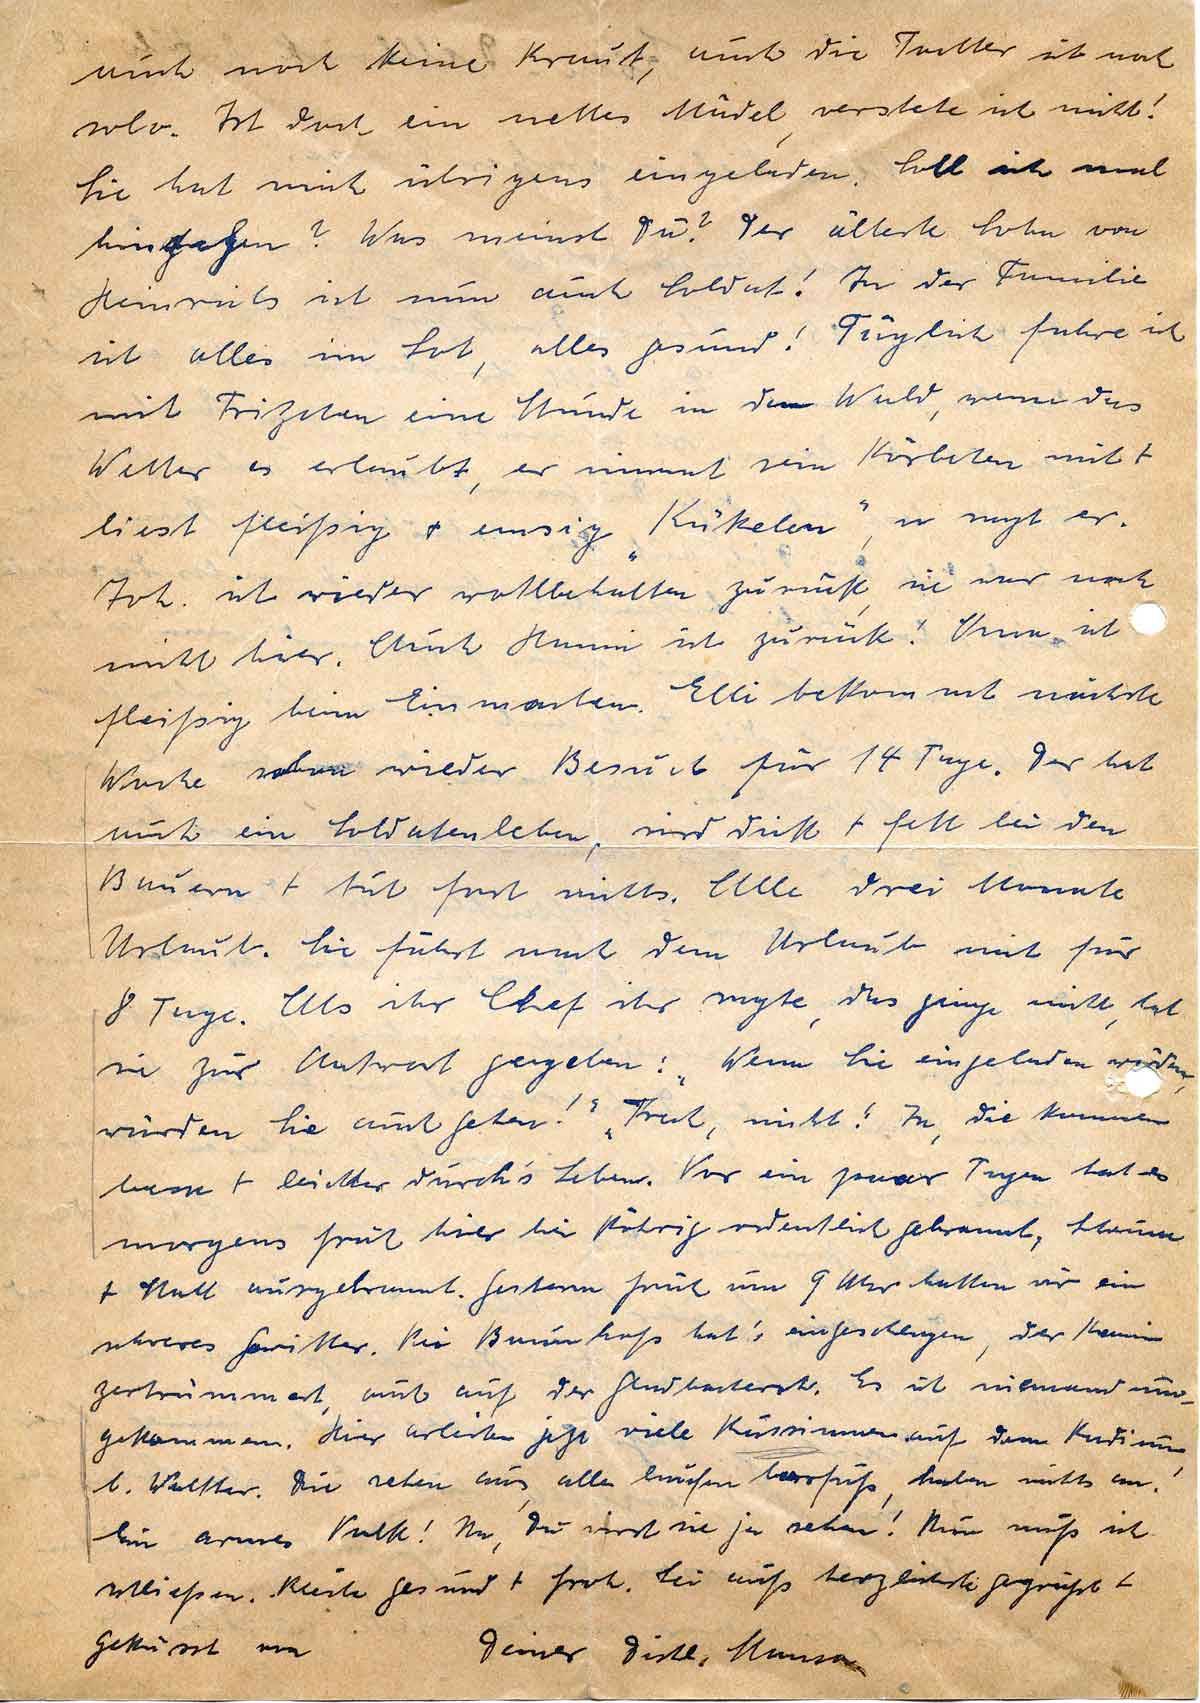 auch noch keine Braut, auch die Tochter ist noch
solo. Ist doch ein nettes Mädel, verstehe ich nicht!
Sie hat mich übrigens eingeladen. Soll ich mal
hingehen? Was meinst Du? Der älteste Sohn von
Heinrichs ist nun auch Soldat! In der Familie
ist alles im Lot, alles gesund! Täglich fahre ich
mit Fritzchen eine Stunde in den Wald, wenn das
Wetter es erlaubt, er nimmt sein Körbchen mit +
liest fleißig + emsig „Kükelen“, so sagt er.
Joh. ist wieder wohlbehalten zurück, sie war noch
nicht hier. Auch Hanni ist zurück! Oma ist
fleißig beim Einmachen. Elli bekommt nächste
Woche schon wieder Besuch für 14 Tage. Der hat
auch ein Soldatenleben, wird dick + fett bei den
Bauern + tut fast nichts. Alle drei Monate
Urlaub. Sie fährt nach dem Urlaub mit für
8 Tage. Als ihr Chef ihr sagte, das ginge nicht, hat
sie zur Antwort gegeben: „Wenn Sie eingeladen würden,
würden Sie auch gehen!“ „Frech, nicht“! Ja, die kommen
besser + leichter durch's Leben. Vor ein paar Tagen hat es
morgens früh hier bei Röhrig ordentlich gebrannt, Scheune
+ Stall ausgebrannt. Gestern früh um 9 Uhr hatten wir ein
schweres Gewitter. Bei hat's eingeschlagen, der Kamin
zertrümmert, auch auf der Gladbacherstr. Es ist niemand um-
gekommen. Hier arbeiten jetzt viele Russinnen auf dem
b. Walther. Die sehen aus, alle laufen barfuß, haben nichts an!
Ein armes Volk! Na, Du wirst sie ja sehen! Nun muß ich
schließen. Bleibe gesund + froh. Sei aufs herzlichste gegrüßt +
geküsst von Deiner Dich l.